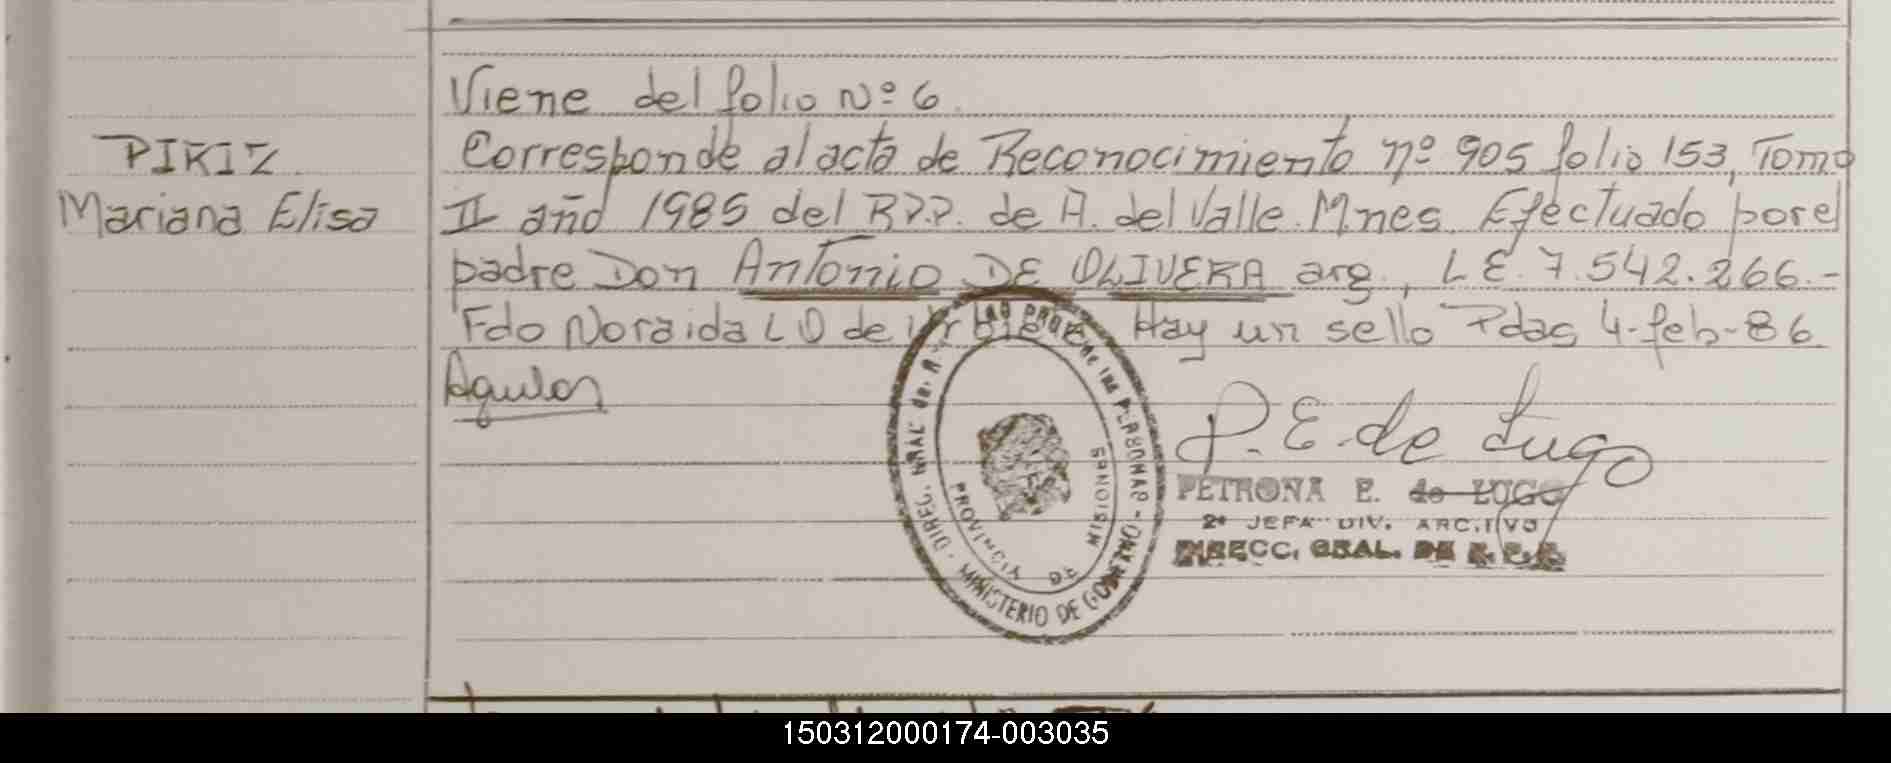 Viene del folio Nº 6.
PIRIZ
Mariana Elisa
Corresponde al acta de Reconocimiento nº 905 folio 153, Tomo
II año 1985 del RPP. de A. del Valle. Mnes. Efectuado por el
padre Don Antonio DE OLIVERA arg., L.E. 7.542.266.-
Fdo Noraida L O de Hay un sello Pdas 4-feb-86.
P. E. de Lugo
PETRONA E. de LUGO
2ª JEFA DIV. ARCHIVO
DIRECC. GRAL. DE R. P. P.
DIREC. GRAL del PROV. DE LAS PERSONAS
MINISTERIO DE GOBIERNO
PROVINCIA DE MISIONES
150312000174-003035